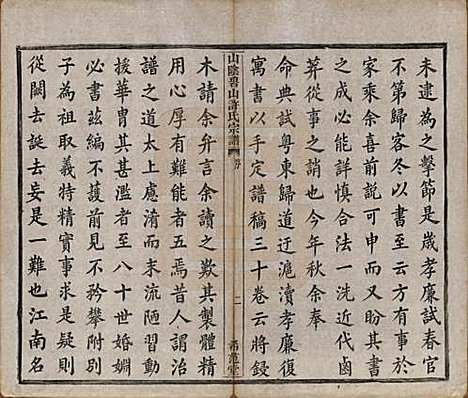 未逮為之擊節是歲孝廉試春官
不第歸客冬以書至云方有事於
家乘吾喜前說可申而又盼其書
之成必能詳慎合法一洗近代鹵
莽從事之誚也今年秋余奉
命典試粵東歸道迂滬瀆孝廉復
寓書以手定譜稿三十卷云將鋟
山陰碧山許氏宗譜
序
二
木請余弁言余讀之歎其製體精
用心厚有難能者五焉昔人謂治
譜之道有慮淆而未流陋習動
援華胄其甚濫者至八十世婚姻
必書茲編於前見不矜攀附則
子為祖取精實事求是疑則
從闕去說去妄是一難也江南名